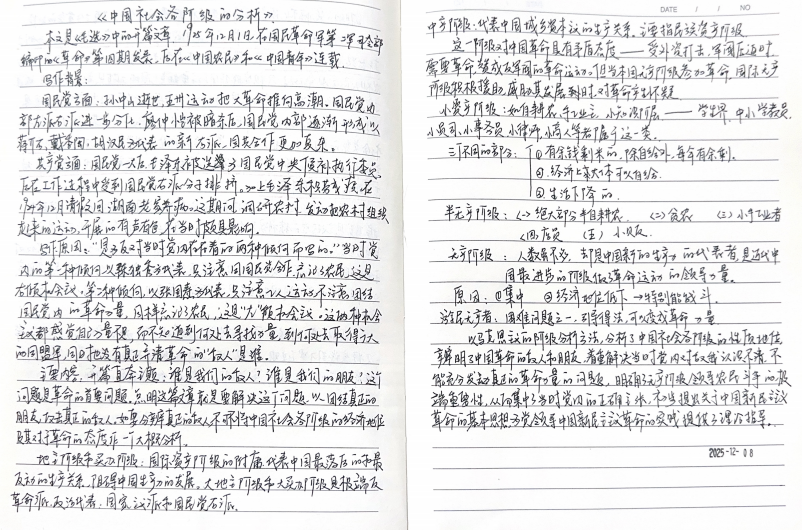 《中国社会各阶级的分析》
本文是《毛选》中的开篇文章，1925年12月1日，在国民革命军第二军司令部
编印的《革命》第四期发表，后在《中国农民》和《中国青年》连载。
写作背景：
国民党方面：孙中山逝世，五卅运动把大革命推向高潮，国民党内
部左派右派进一步分化，廖仲恺被暗杀后，国民党内部逐渐形成以
蒋介石、戴季陶、胡汉民为代表的新右派，国共合作更加复杂。
共产党方面：国民党一大后毛泽东被选举为国民党中央候补执行委员，
后在工作过程中受到国民党右派分子排挤，加上毛泽东积劳成疾，在
1924年12月请假回湖南老家养病。这期间，调研农村，发动和农村组织
农民的运动，开展的有声有色，在当时颇具影响。
写作原因：“是为反对当时党内存在着的两种倾向而写的。”当时党
内的第一种倾向，以陈独秀为代表，只注意同国民党合作，忘记农民，这是
右倾机会主义。第二种倾向，以张国焘为代表，只注意工人运动，不注意团结
国民党内的革命力量，同样忘记了农民，这是“左”倾机会主义。这两种机会
主义都感觉自己力量不足，而不知道到何处去寻找力量，到何处去取得广大
的同盟军，同时也没有真正弄清革命的“敌人”是谁。
主要内容：开篇直奔主题：谁是我们的敌人？谁是我们的朋友？这个
问题是革命的首要问题。点明这篇文章就是要解决这个问题，以团结真正的
朋友，攻击真正的敌人，如要分辨真正的敌友，不可不将中国社会各阶级的经济地位
及其对革命的态度作一个大概分析。
地主阶级和买办阶级：国际资产阶级的附庸，代表中国最落后的和最
反动的生产关系，阻碍中国生产力的发展。大地主阶级和大买办阶级是极端反
革命派，政治代表：国家主义派和国民党右派。
DATE
NO.
中产阶级：代表中国城乡资本主义的生产关系，主要指民族资产阶级
这一阶级对中国革命具有矛盾态度——受外资打击、军阀压迫时
需要革命，赞成反军阀的革命运动，但当本国无产阶级参加革命，国际无产
阶级积极援助，威胁其发展到时，对革命产生怀疑
小资产阶级：如自耕农，手工业主，小知识阶层——学生界、中小学教员
小员司、小事务员、小律师、小商人等都属于这一类。
三个不同的部分：①有余钱剩米的，除自给外，每年有余剩。
②经济上大体可以自给。
③生活下降的
半无产阶级：（一）绝大部分半自耕农 （二）贫农 （三）小手工业者
（四）店员 （五）小贩
无产阶级：人数虽不多，却是中国新的生产力的代表者，是近代中
国最进步的阶级，做了革命运动的领导力量。
原因：①集中 ②经济地位低下→特别能战斗。
游民无产者：困难问题之一，引导得法，可以变成革命力量
以马克思主义的阶级分析方法，分析了中国社会各阶级的性质地位，
辨明了中国革命的敌人和朋友，着重解决当时党内对敌我认识不清、不
能充分发动真正的革命力量的问题，明确无产阶级领导农民斗争的极
端重要性，从而集中了当时党内的正确主张，初步提出关于中国新民主主义
革命的基本思想，为党领导中国新民主主义革命的实践提供了理论指导。
2025-12-08